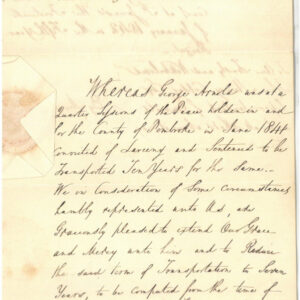 Whereas George Arnold was at a
Quarter Sessions of the Peace holden in and
for the County of Pembroke in June 1841
Convicted of Larceny and Sentenced to be
Transported Ten Years for the Same—
We in Consideration of Some Circumstances
humbly represented unto Us, are
Graciously pleased to extend Our Grace
and Mercy unto him and to Reduce
the said term of Transportation to Seven
Years, to be Computed from the time of